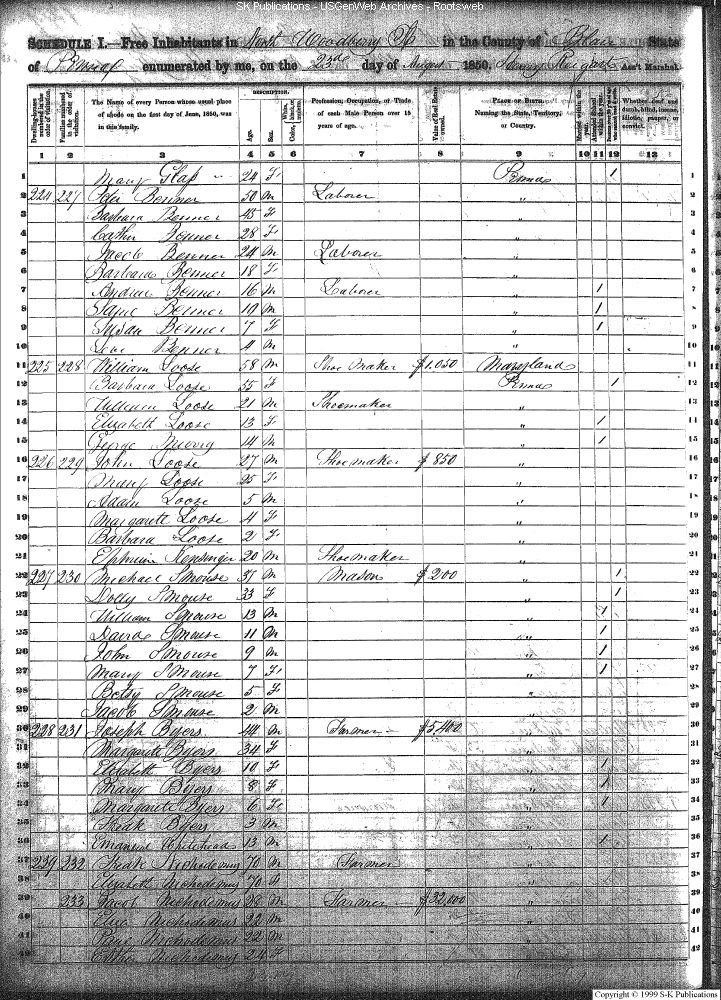 SK Publications - USGenWeb Archives - Rootsweb
SCHEDULE I.—Free Inhabitants in North Woodberry Tp in the County of Blair State
of Penna enumerated by me, on the 23d day of August 1850. Ass't Marshal.
Dwelling-houses numbered in the order of visitation.
Families numbered in the order of visitation.
The Name of every Person whose usual place of abode on the first day of June, 1850, was in this family.
DESCRIPTION.
Age.
Sex.
Color, White, black, or mulatto.
Profession, Occupation, or Trade of each Male Person over 15 years of age.
Value of Real Estate owned.
PLACE OF BIRTH. Naming the State, Territory, or Country.
Married within the year.
Attended School within the year.
Whether deaf and dumb, blind, insane, idiotic, pauper, or convict.
1 2 3 4 5 6 7 8 9 10 11 12 13
1 Mary 24 F Penna / 1
2 224 227 Benner 50 M Laborer " 2
3 Barbara Benner 43 F " 3
4 Benner 28 F " 4
5 Jacob Benner 24 M Laborer " 5
6 Barbara Benner 18 F " 6
7 Andrew Benner 16 M Laborer " / 7
8 Benner 10 M " / 8
9 Susan Benner 7 F " / 9
10 Levi Benner 4 M " 10
11 225 228 William Loose 58 M Shoe Maker $1,050 Maryland 11
12 Barbara Loose 55 F Penna / 12
13 William Loose 21 M Shoemaker " 13
14 Elizabeth Loose 13 F " / 14
15 George 14 M " / 15
16 226 229 John Loose 27 M Shoemaker $850 " 16
17 Mary Loose 25 F " 17
18 Adam Loose 5 M " 18
19 Margarett Loose 4 F " 19
20 Barbara Loose 2 F " 20
21 Ephraim Kensinger 20 M Shoemaker " 21
22 227 230 Michael Smouse 37 M Mason $200 " / 22
23 Dolly Smouse 33 F " / 23
24 William Smouse 13 M " / 24
25 David Smouse 11 M " / 25
26 John Smouse 9 M " / 26
27 Mary Smouse 7 F " / 27
28 Betsy Smouse 5 F " 28
29 Jacob Smouse 2 M " 29
30 228 231 Joseph Byers 44 M Farmer $5,400 " 30
31 Margarett Byers 34 F " 31
32 Elizabeth Byers 10 F " / 32
33 Mary Byers 8 F " / 33
34 Margarett Byers 6 F " / 34
35 Byers 3 M " 35
36 Emanuel Whitehead 13 M " / 36
37 239 232 Nichodemus 70 M Farmer " 37
38 Elizabeth Nichodemus 70 F " 38
39 233 Jacob Nichodemus 28 M Farmer $32,000 " 39
40 Nichodemus 22 M " 40
41 Nichodemus 22 M " 41
42 Esther Nichodemus 24 F " 42
Copyright © 1999 S-K Publications